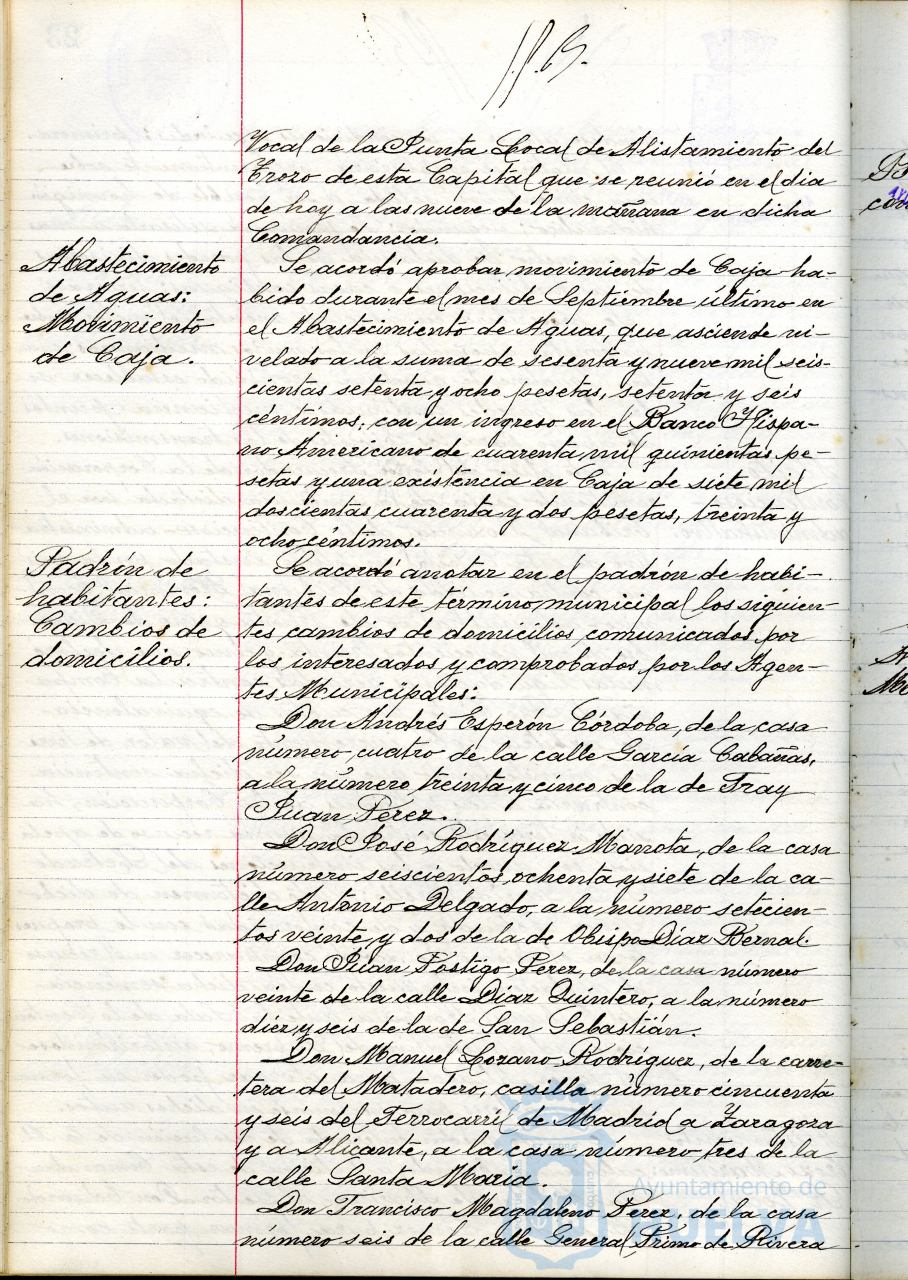 Vocal de la Junta Local de Alistamiento del
Trozo de esta Capital que se reunió en el dia
de hoy a las nueve de la mañana en dicha
Comandancia.
Abastecimiento
de Aguas:
Movimiento
de Caja.
Se acordó aprobar movimiento de Caja ha-
bido durante el mes de Septiembre último en
el Abastecimiento de Aguas, que asciende ni-
velado a la suma de sesenta y nueve mil seis-
cientas setenta y ocho pesetas, setenta y seis
céntimos, con un ingreso en el Banco Hispa-
no Americano de cuarenta mil quinientas pe-
setas y una existencia en Caja de siete mil
doscientas cuarenta y dos pesetas, treinta y
ocho céntimos.
Padrón de
habitantes:
Cambios de
domicilios.
Se acordó anotar en el padrón de habi-
tantes de este término municipal los siguien-
tes cambios de domicilios comunicados por
los interesados y comprobados por los Agen-
tes Municipales:
Don Andrés Esperón Córdoba, de la casa
número cuatro de la calle García Cabañas,
a la número treinta y cinco de la de Fray
Juan Pérez.
Don José Rodríguez Marrota, de la casa
número seiscientos ochenta y siete de la ca-
lle Antonio Delgado, a la número setecien-
tos veinte y dos de la de Obispo Díaz Bernal.
Don Juan Postigo Pérez, de la casa número
veinte de la calle Díaz Quintero, a la número
diez y seis de la de San Sebastián.
Don Manuel Lozano Rodríguez, de la carre-
tera del Matadero, casilla número cincuenta
y seis del Ferrocarril de Madrid a Zaragoza
y a Alicante, a la casa número tres de la
calle Santa María.
Don Francisco Magdaleno Pérez, de la casa
número seis de la calle General Primo de Rivera
Ayuntamiento de
HUELVA